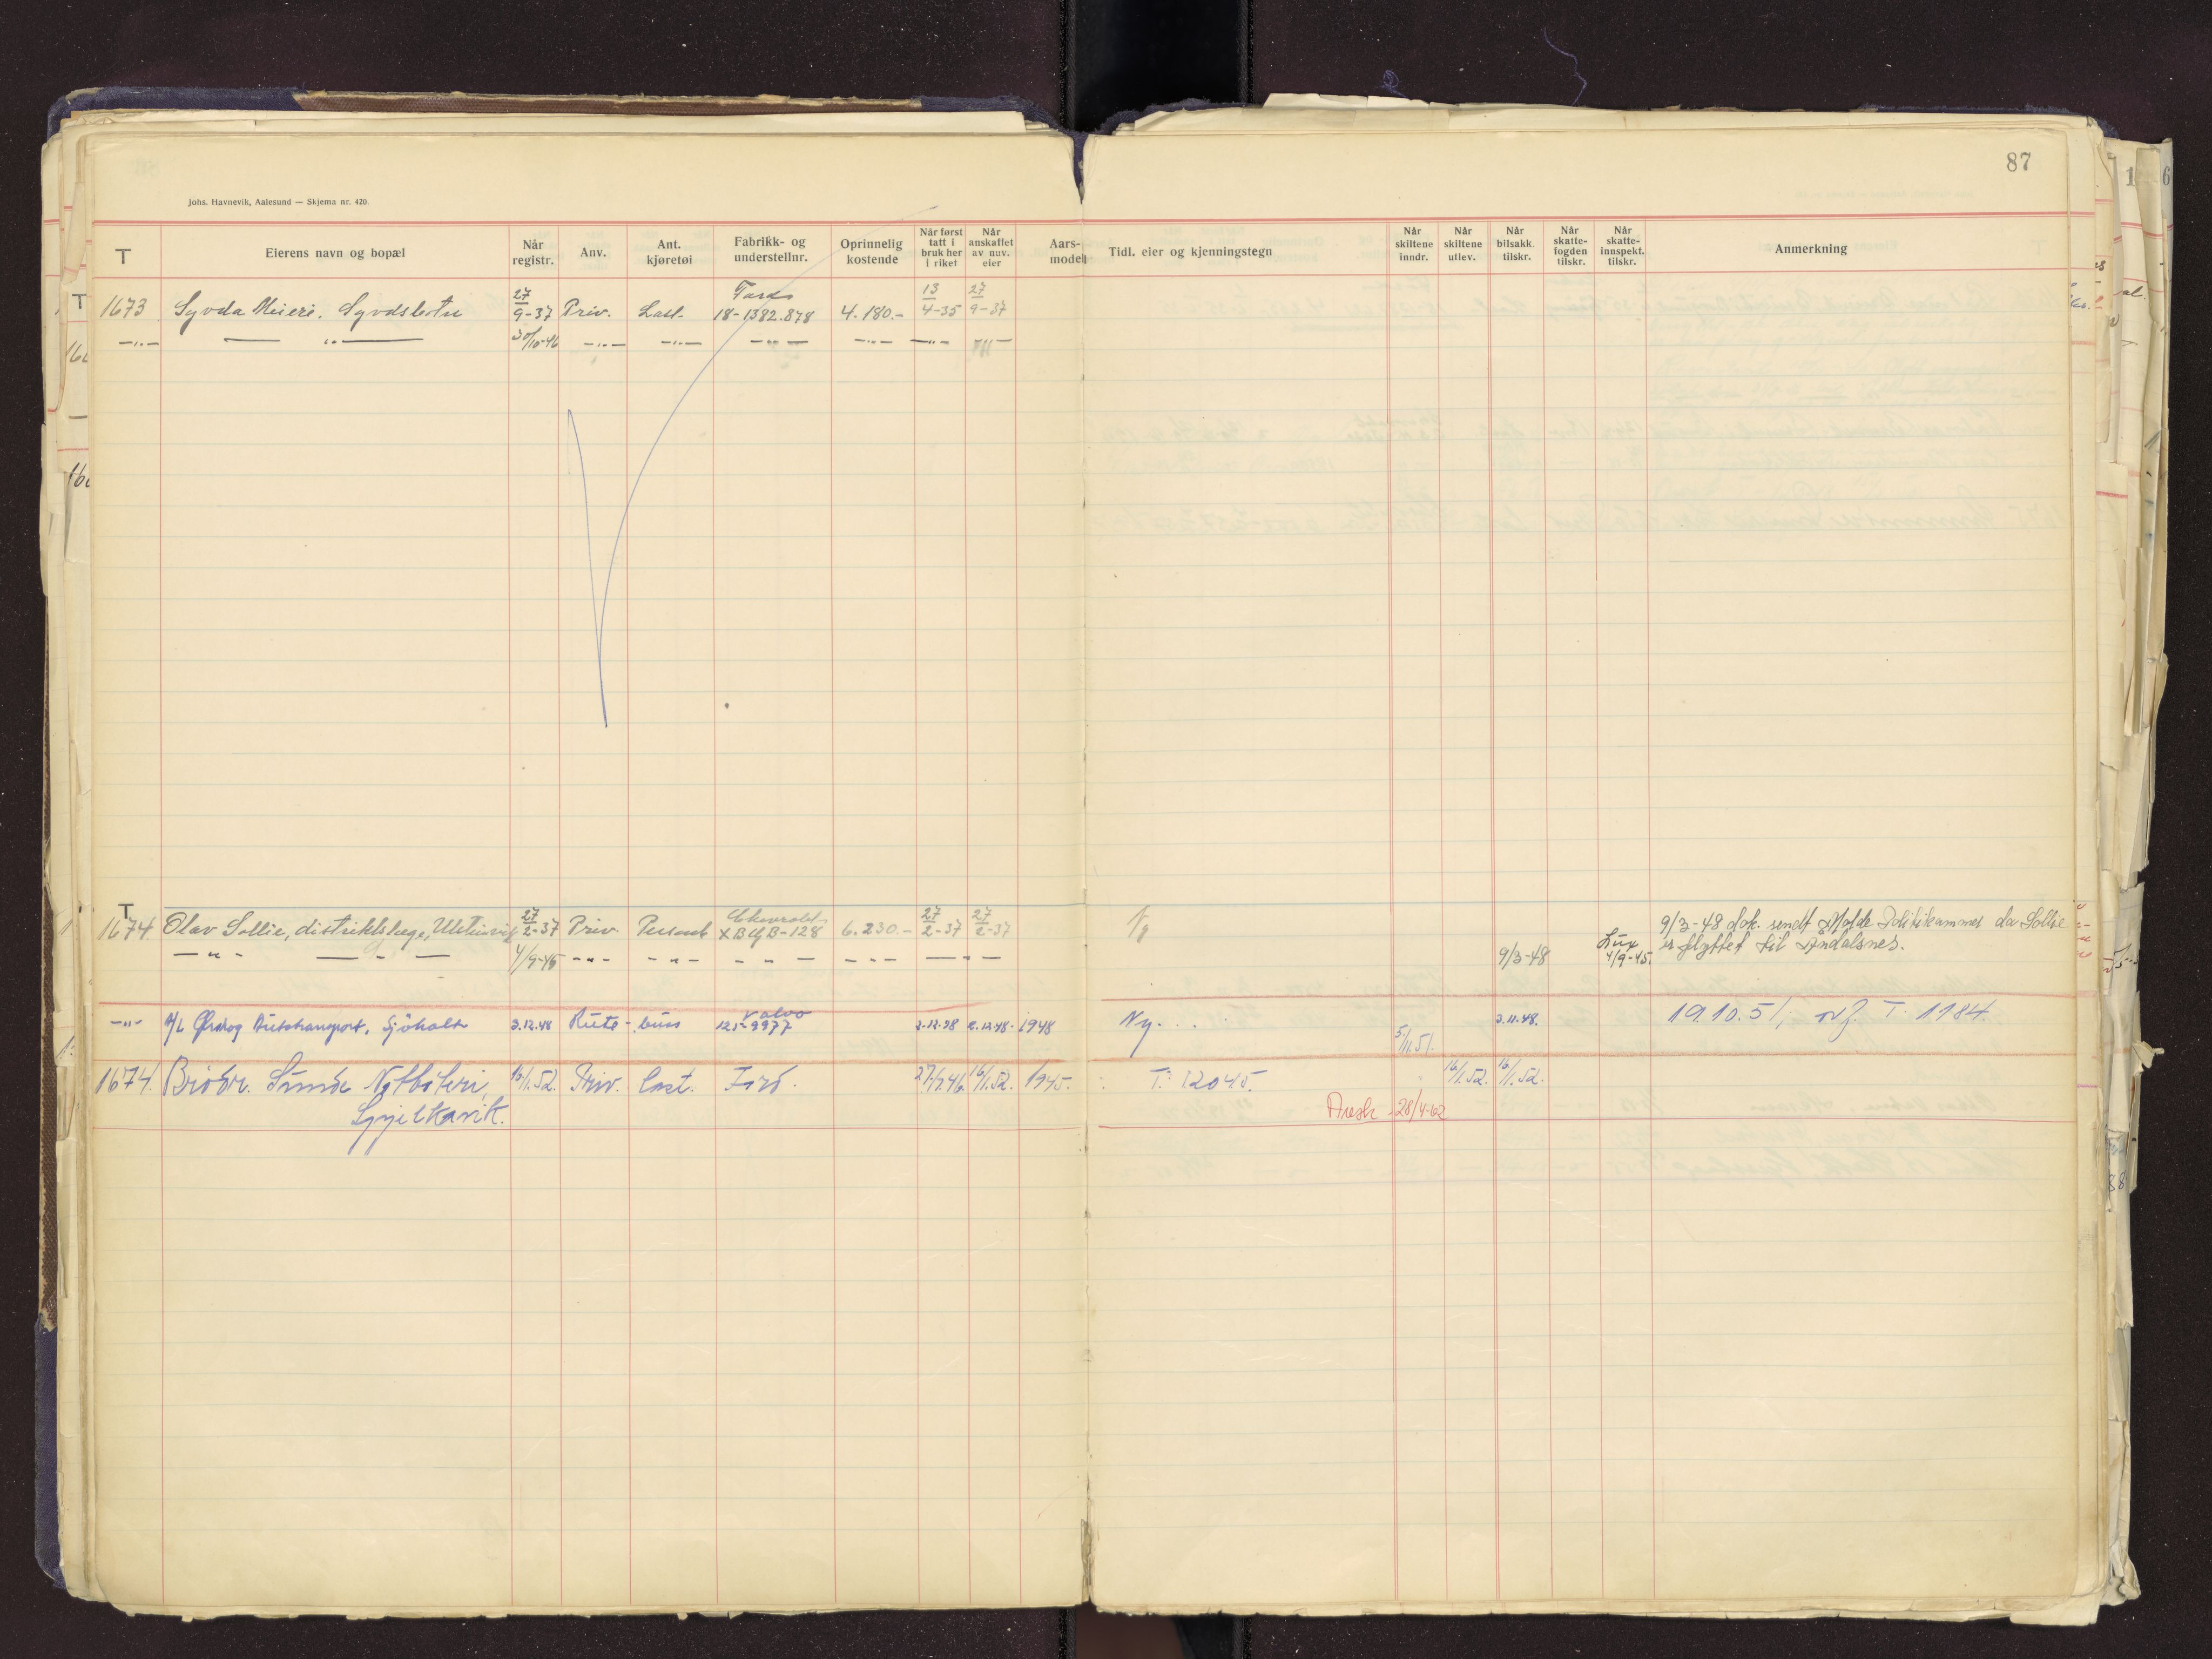 87
Johs. Havnevik, Aalesund — Skjema nr. 420.
T Eierens navn og bopæl Når registr. Anv. Ant. kjøretøi Fabrikk- og understellnr. Oprinnelig kostende Når først tatt i bruk her i riket Når anskaffet av nuv. eier Aars-modell Tidl. eier og kjenningstegn Når skiltene inndr. Når skiltene utlev. Når bilsakk. tilskr. Når skatte-fogden tilskr. Når skatte-innspekt. tilskr. Anmerkning
1673 Syvda Meieri. Syvdsbotn 27/9-37 Priv. Last. Ford 18-1382.878 4.180.- 13/4-35 27/9-37
—"— — " — 30/10-46 —"— —"— —"— —"— —"—
T
1674. Olav Sollie, distriktslæge, Ulsteinvik 27/2-37 Priv. Personb Chevrolet XBYB-128 6.230.- 27/2-37 27/2-37 Ny 9/3-48 dok. sendt Molde Politikammer da Sollie
er flyttet til Åndalsnes.
— " - — " — 4/9-45 - " - - " - - " - - " - — " — 9/3-48 Lux 4/9-45.
-"- A/L Ørskog Autotransport, Sjøholt 3.12.48 Rute- buss Volvo 121-9977 2.12.48 2.12.48- 1948 Ny. . . 5/11.51. 3.11.48. 19.10.51, ovf. T. 1184.
1674. Brødr. Sunde Notbøteri, 16/1.52. Priv. Last. Ford. 27/7.46. 16/1.52. 1945. T. 12045. 16/1.52. 16/1.52.
Spjelkavik.
Avsk - 28/4-62